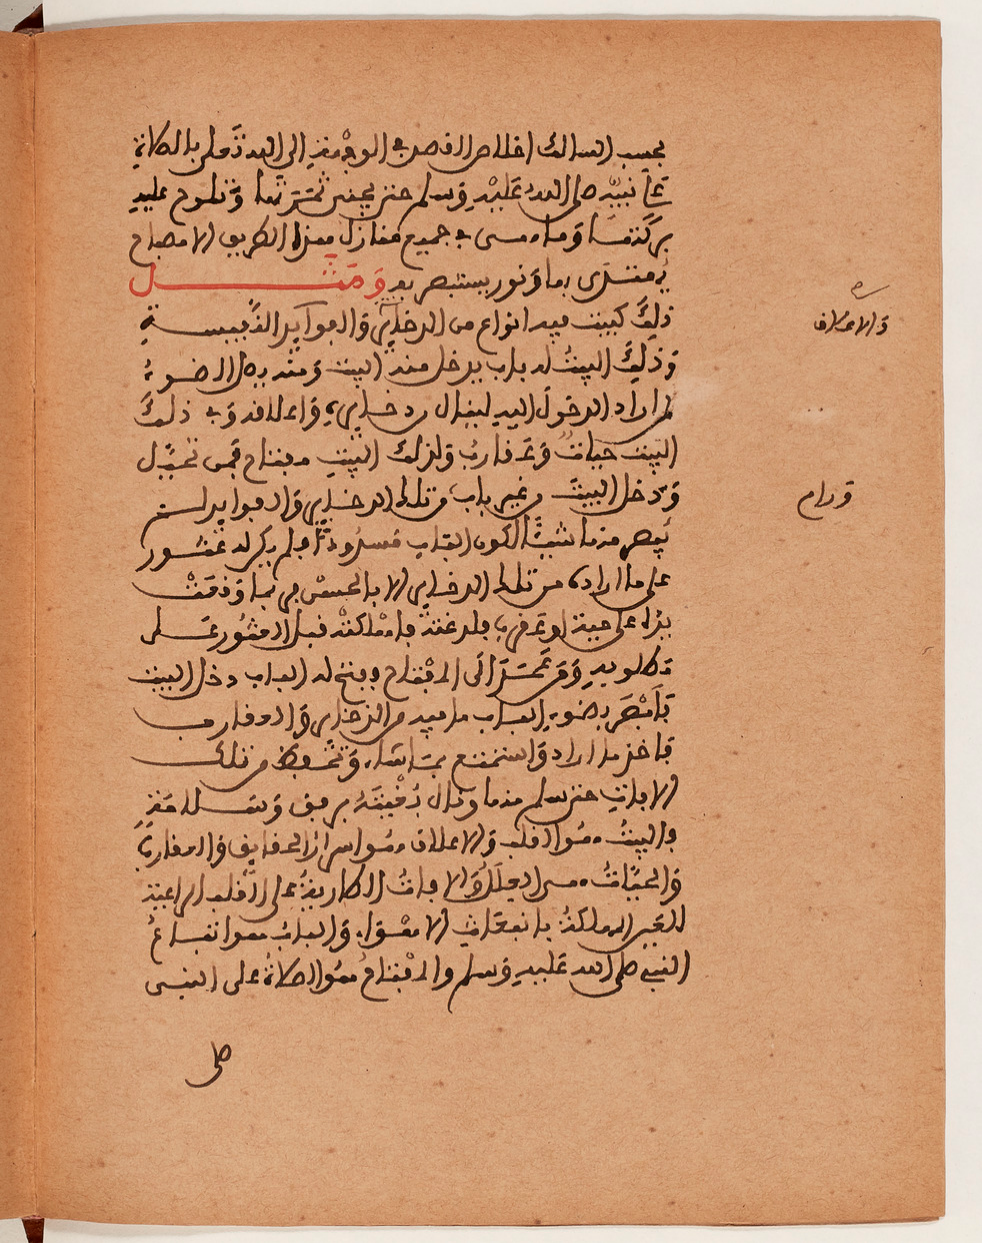 بحسب السالك اخلاص القصد في الوجهة الى الله تعلى بالصلاة
على نبيه صلى الله عليه وسلم حتى يجني ثمرتها وتلوح عليه
بركتها وما هي في جميع منازل هذا الطريق الا مصباح
يهتدى بها ونور يستبصر به ومثل
ذلك كبيت فيه انواع من الدخاير والفوايد النفيسة
والاعلاف
وذلك البيت له باب يدخل منه البيت ومنه يصل الضوء
لمن اراد الدخول اليه لينال دخايره واعلافه وفي ذلك
البيت حيات وعقارب ولذلك البيت مفتاح فمن تحيل
ودخل البيت من غير باب من تلك الدخاير والفوايد لم
ورام
يبصر منها شيئا لكون الباب مسدودا فلم يكن له عثور
على ما اراده من تلك الدخاير الا بالحس فربما وقعت
يده على حية او عقرب فلدغته فاهلكته قبل العثور على
مطلوبه ومن تحصل الى المفتاح وفتح له الباب دخل البيت
فابصر بضوء الباب ما فيه من الدخاير والعقارب
فاخذ ما اراد واستمتع بما شاء وتحفظ من تلك
الافات حتى سلم منها ونال بغيته برفق وسلامة
فالبيت هو القلب والاعلاق هو اسرار الحقايق والعقارب
والحيات هي العلل والافات الطارية على القلب الراغبة
المهلكة باتباع الاهواء والباب هو اتباع
النبي صلى الله عليه وسلم والمفتاح هو الصلاة على النبي
صلى